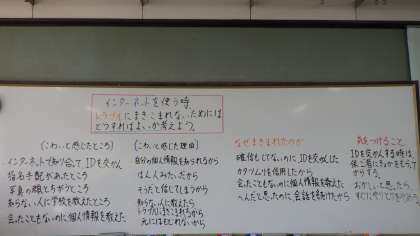 インターネットを使う時
トラブルにまきこまれないためには
どうすればよいか考えよう。
(こわいと感じたところ)
インターネットで知り合って、IDを交かん
指名手配があったところ
写真の顔とちがうところ
知らない人に学校を教えたところ
会ったこともないのに個人情報を教えた
(こわいと感じた理由)
自分の個人情報を知られるから
はんんみたいだから
そうだと信じてしまうから
知らない人に教えたら
トラブルにまきこまれるから
元にはもどれないから
なぜまきまれたのか
確信もしてないのにIDを交かんした
カタツムリを信用したから
会ったこともないのに個人情報を教えた
へんだと思ったのに会話を続けたから
気をつけること
IDを交かんする時は、
保ご者にきょかをもらっ
てからする。
おかしいと思ったら、